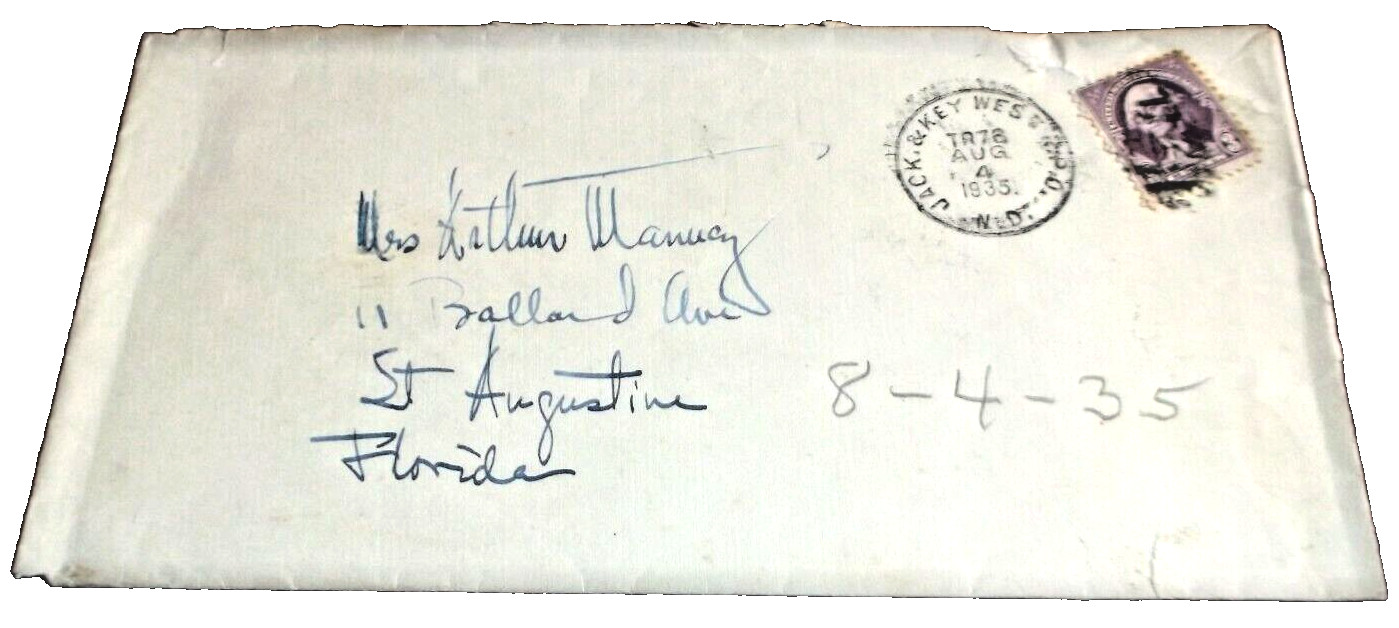 JACK. & KEY WEST R.P.O.
TR78
AUG
4
1935.
W.D.
Mrs Arthur Manucy
11 Ballard Ave
St Augustine
Florida
8-4-35
3